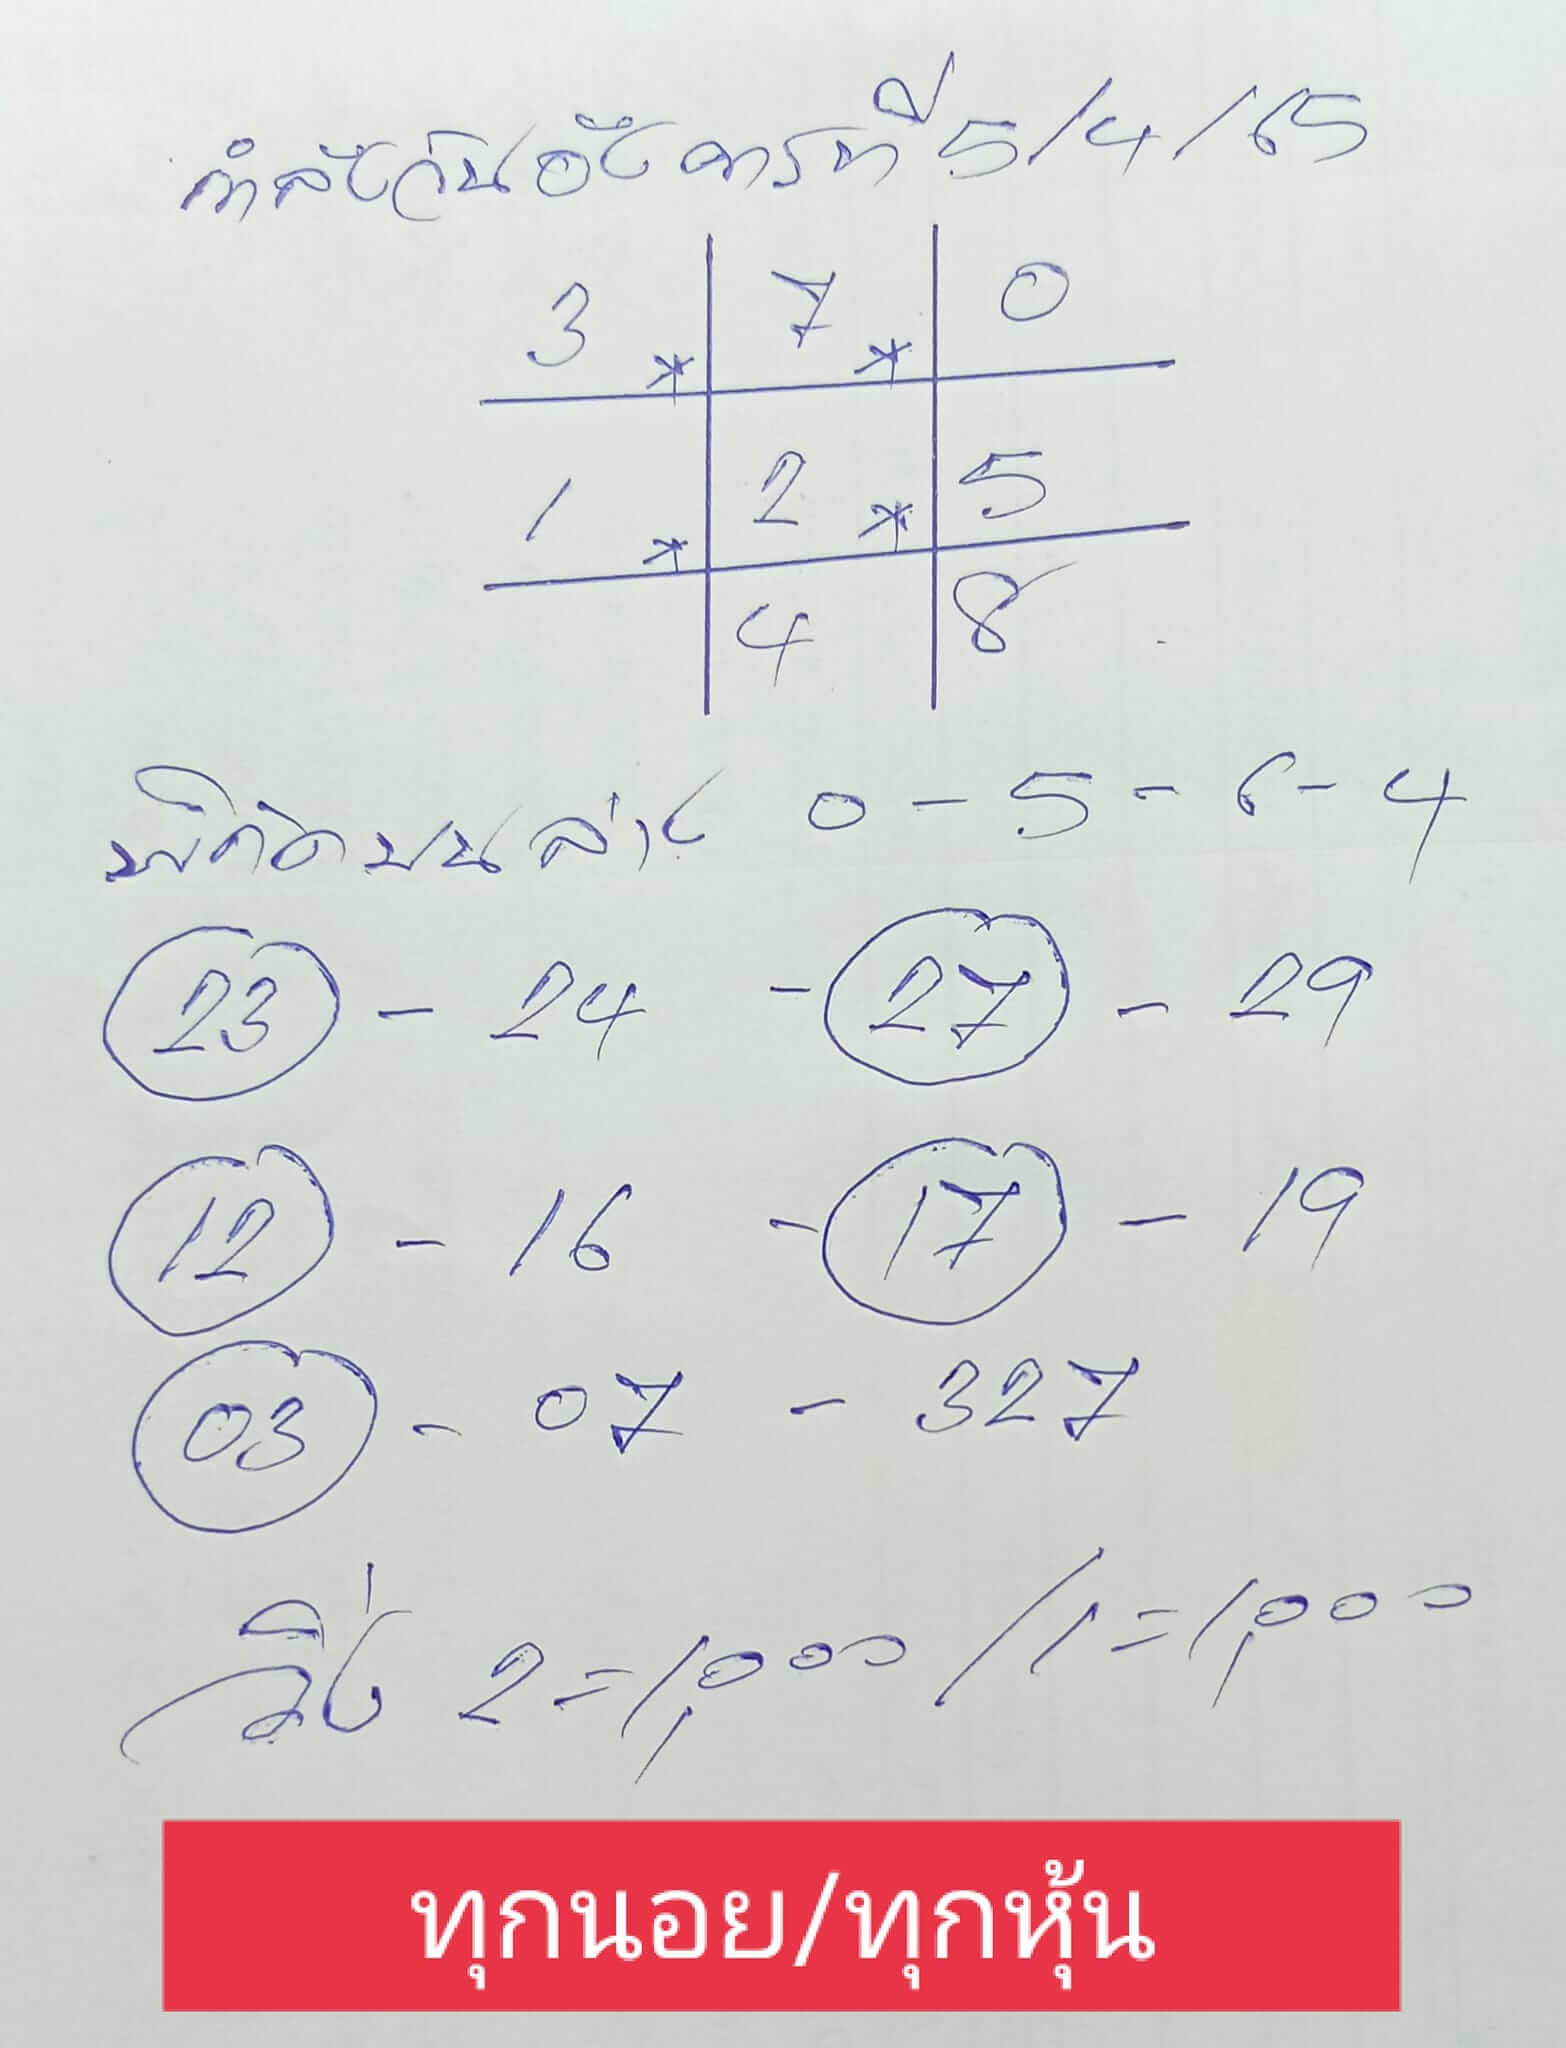 กำลังวันอังคารที่ 5/4/65
3 * 7 * 0
1 * 2 * 5
4 8
พิกัดบนล่าง 0-5-6-4
23 - 24 - 27 - 29
12 - 16 - 17 - 19
03 - 07 - 327
วิ่ง 2=1,000/1=1,000
ทุกนอย/ทุกหุ้น